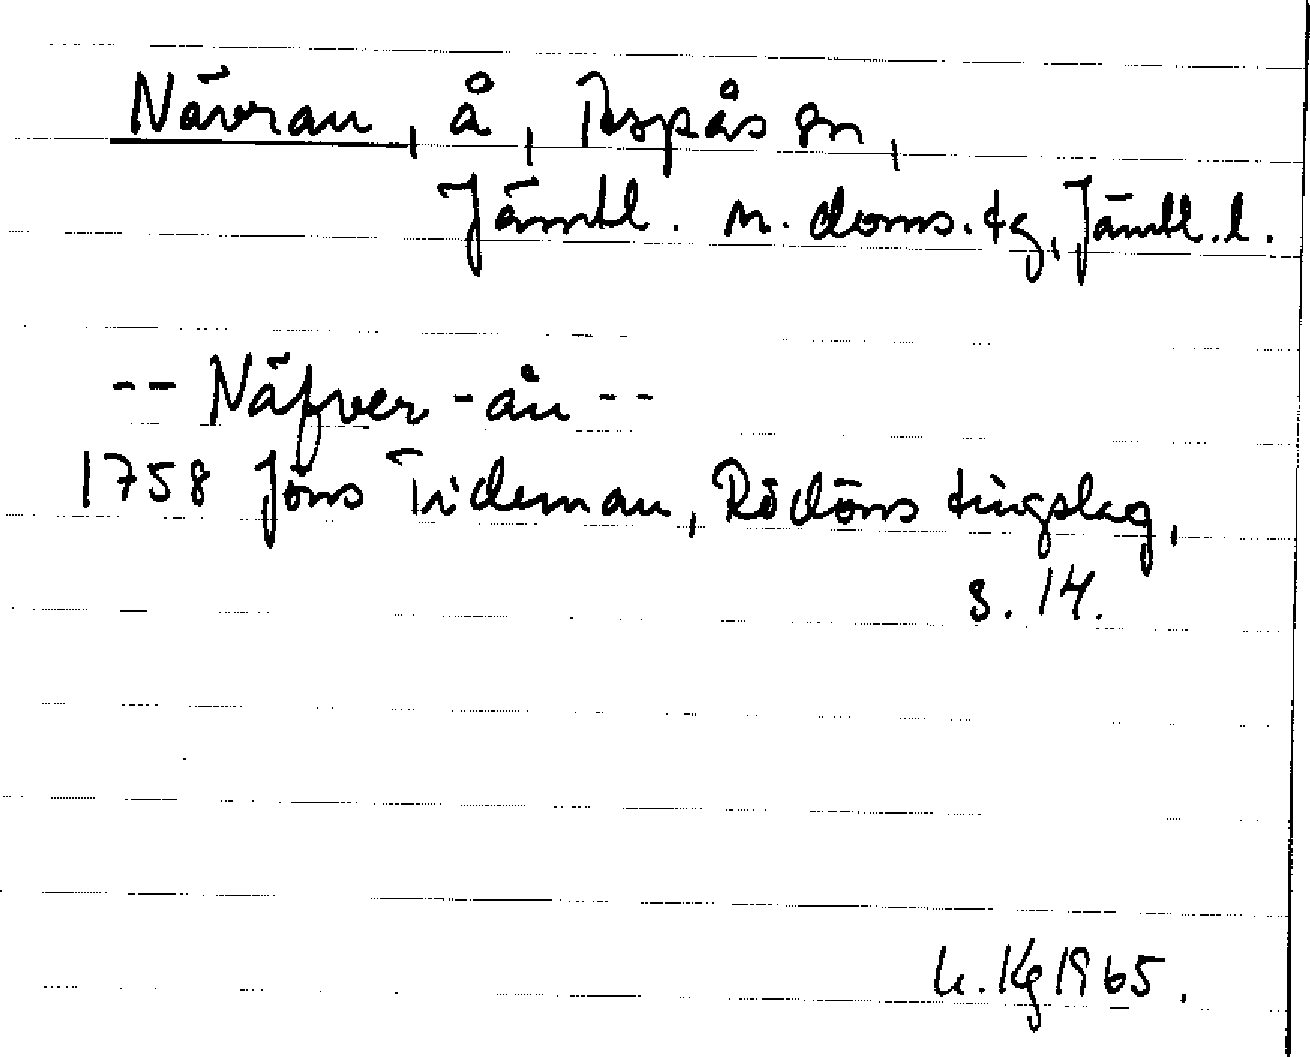 Nävran, å, Aspås sn,
Jämtl. n. doms. tg, Jämtl. l.
-- Näfver-ån --
1758 Jöns Trideman, Rödöns tingslag,
s. 14.
Kg 1965.